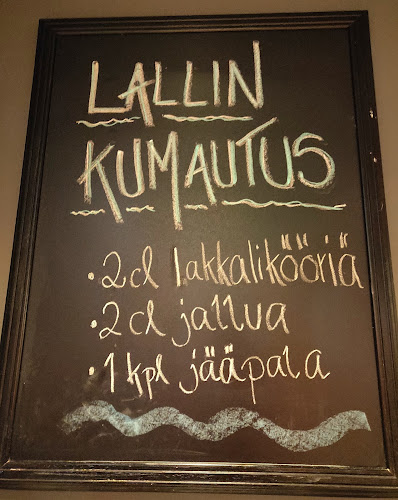 LALLIN
KUMAUTUS
• 2 cl lakkalikööriä
• 2 cl jallua
• 1 kpl jääpala